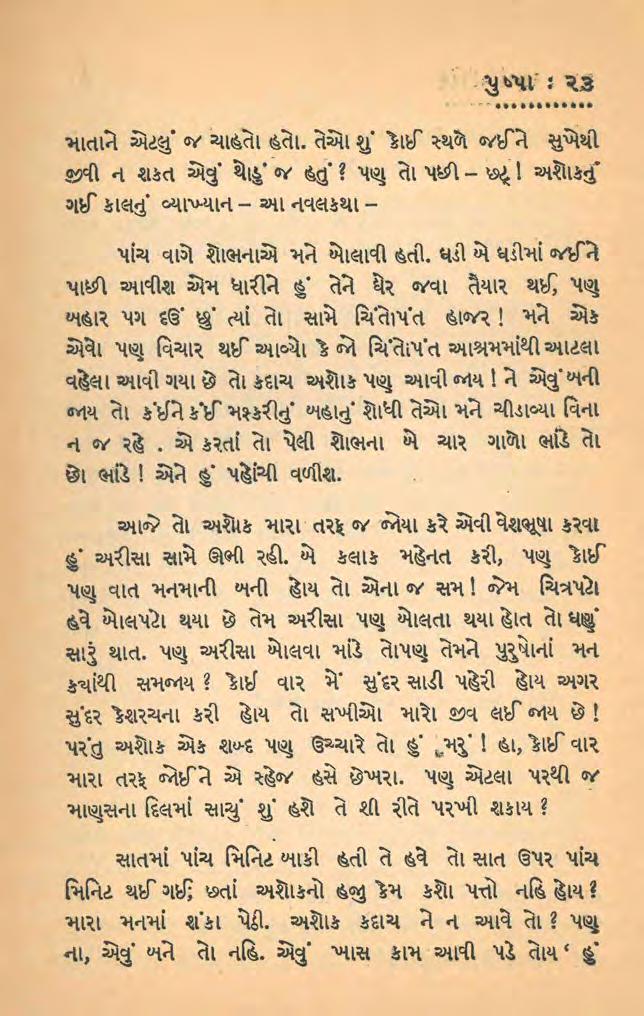 પુષ્પા : ૨૩
માતાને એટલું જ ચાહતો હતો. તેઓ શું કોઈ સ્થળે જઈને સુખેથી
જીવી ન શકત એવું થોડું જ હતું ? પણ તો પછી – છટ્ ! અશોકનું
ગઈ કાલનું વ્યાખ્યાન – આ નવલકથા –
પાંચ વાગે શોભનાએ મને બોલાવી હતી. ઘડી બે ઘડીમાં જઈને
પાછી આવીશ એમ ધારીને હું તેને ઘેર જવા તૈયાર થઈ, પણ
બહાર પગ દઉં છું ત્યાં તો સામે ચિંતોપંત હાજર ! મને એક
એવો પણ વિચાર થઈ આવ્યો કે જો ચિંતોપંત આશ્રમમાંથી આટલા
વહેલા આવી ગયા છે તો કદાચ અશોક પણ આવી જાય ! ને એવું બની
જાય તો કંઈને કંઈ મશ્કરીનું બહાનું શોધી તેઓ મને ચીડાવ્યા વિના
ન જ રહે . એ કરતાં તો પેલી શોભના બે ચાર ગાળો ભાંડે તો
છો ભાંડે ! એને હું પહોંચી વળીશ.
આજે તો અશોક મારા તરફ જ જોયા કરે એવી વેશભૂષા કરવા
હું અરીસા સામે ઊભી રહી. બે કલાક મહેનત કરી, પણ કોઈ
પણ વાત મનમાની બની હોય તો એના જ સમ ! જેમ ચિત્રપટો
હવે બોલપટો થયા છે તેમ અરીસા પણ બોલતા થયા હોત તો ઘણું
સારું થાત. પણ અરીસા બોલવા માંડે તોપણ તેમને પુરુષોનાં મન
ક્યાંથી સમજાય ? કોઈ વાર મેં સુંદર સાડી પહેરી હોય અગર
સુંદર કેશરચના કરી હોય તો સખીઓ મારો જીવ લઈ જાય છે !
પરંતુ અશોક એક શબ્દ પણ ઉચ્ચારે તો હું મરું ! હા, કોઈ વાર
મારા તરફ જોઈને એ સ્હેજ હસે છેખરા. પણ એટલા પરથી જ
માણસના દિલમાં સાચું શું હશે તે શી રીતે પરખી શકાય ?
સાતમાં પાંચ મિનિટ બાકી હતી તે હવે તો સાત ઉપર પાંચ
મિનિટ થઈ ગઈ; છતાં અશોકનો હજુ કેમ કશો પત્તો નહિ હોય ?
મારા મનમાં શંકા પેઠી. અશોક કદાચ ને ન આવે તો ? પણ
ના, એવું બને તો નહિ. એવું ખાસ કામ આવી પડે તોય ‘ હું